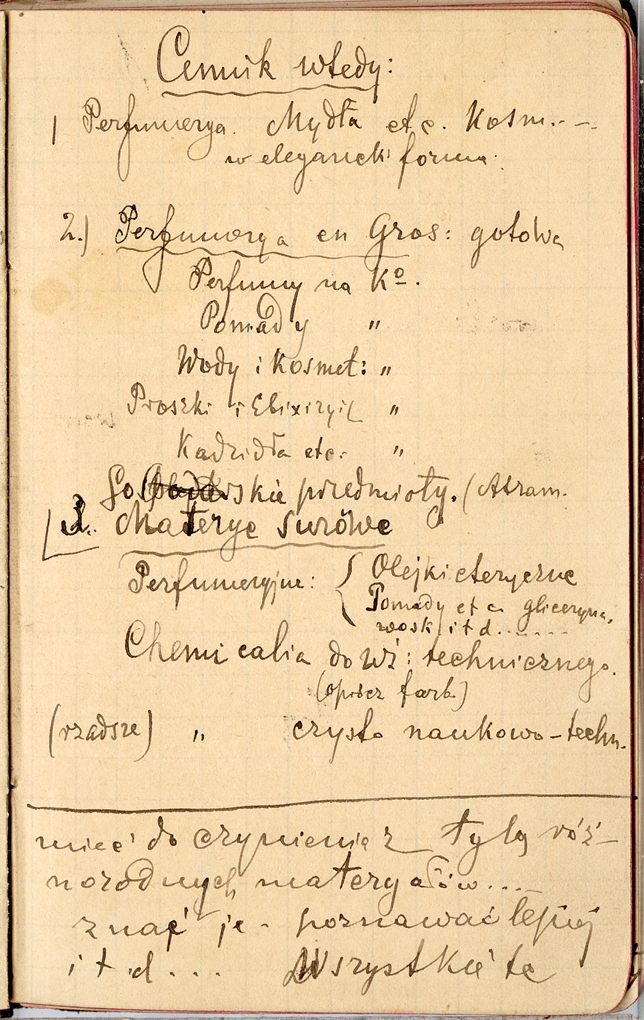 Cennik wtedy:
1 Perfumerya. Mydła etc. Kosm. - –
w eleganck formie.
2.) Perfumerya en Gros: gotowa
Perfumy na Kº.
Pomady "
Wody i Kosmet: "
Proszki i Elixiry i( "
Kadzidła etc. "
Gospodarskie przedmioty. (Atram.
3. Materye surowe
Perfumeryjne: { Olejki eteryczne
Pomady etc. gliceryna,
wosk itd.......
Chemicalia do Wż: technicznego.
(oprócz farb.)
(rzadsze) " czysto naukowo-techn.
mieć do czynienia z tylą róż-
norodnych materyałów....
znać je - poznawać lepiej
i t d... Wszystkie te